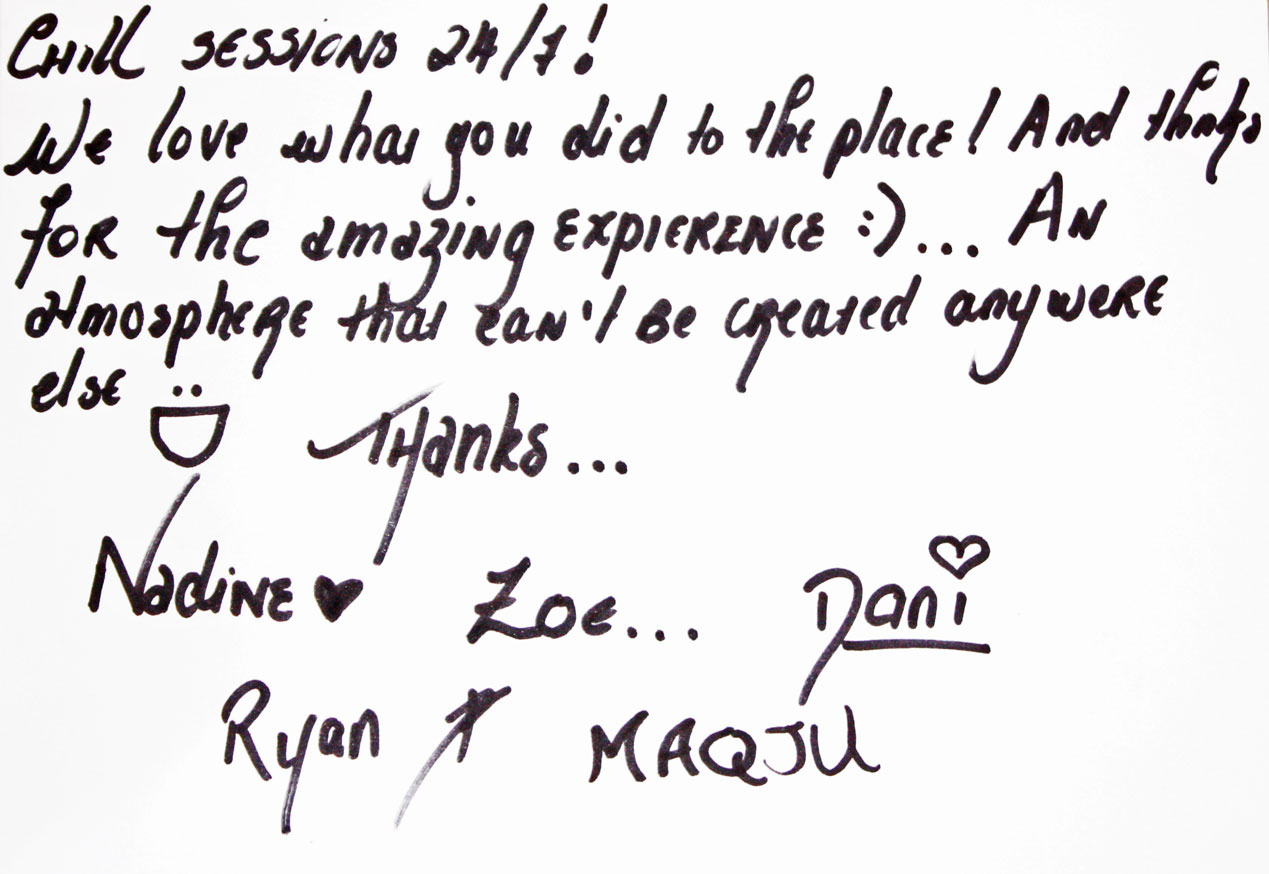 Chill SESSIONS 24/7!
We love what you did to the place! And thnks
for the amazing EXPIERENCE :)... AN
atmosphere that can't be created anywere
else Thanks...
Nadine ♥ Zoe... Dani
Ryan MAQJU